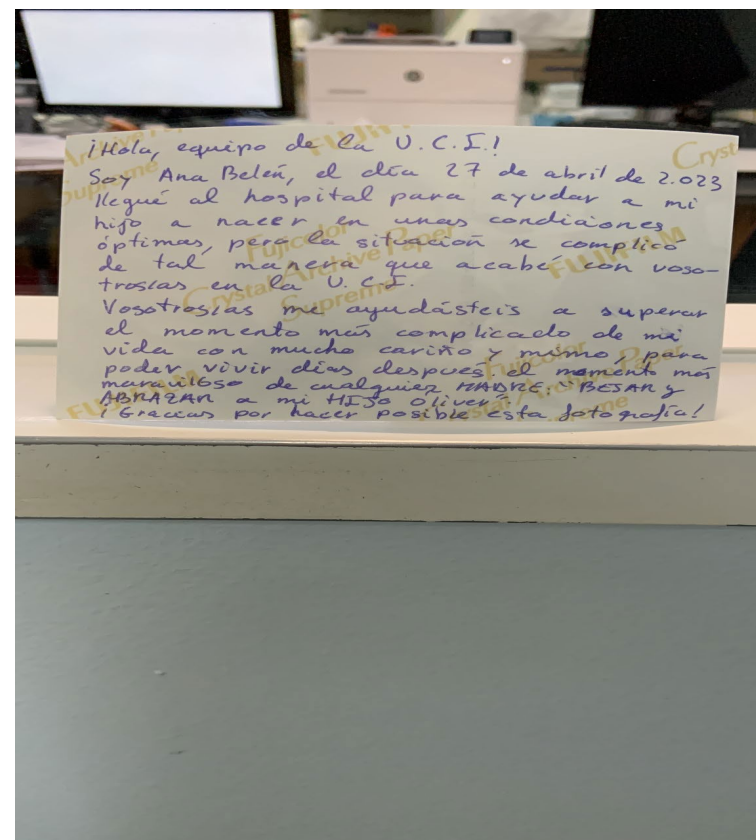 ¡Hola, equipo de la U.C.I.!
Soy Ana Belén, el día 27 de abril de 2.023
llegué al hospital para ayudar a mi
hijo a nacer en unas condiciones
óptimas, pero la situación se complicó
de tal manera que acabé con voso-
tros/as en la U.C.I.
Vosotros/as me ayudásteis a superar
el momento más complicado de mi
vida con mucho cariño y mimo, para
poder vivir días despues, el momento más
maravilloso de cualquier MADRE: "BESAR y
ABRAZAR a mi HIJO Oliver".
¡Gracias por hacer posible esta fotografía!
Fujicolor
Crystal Archive Paper
Supreme
FUJIFILM